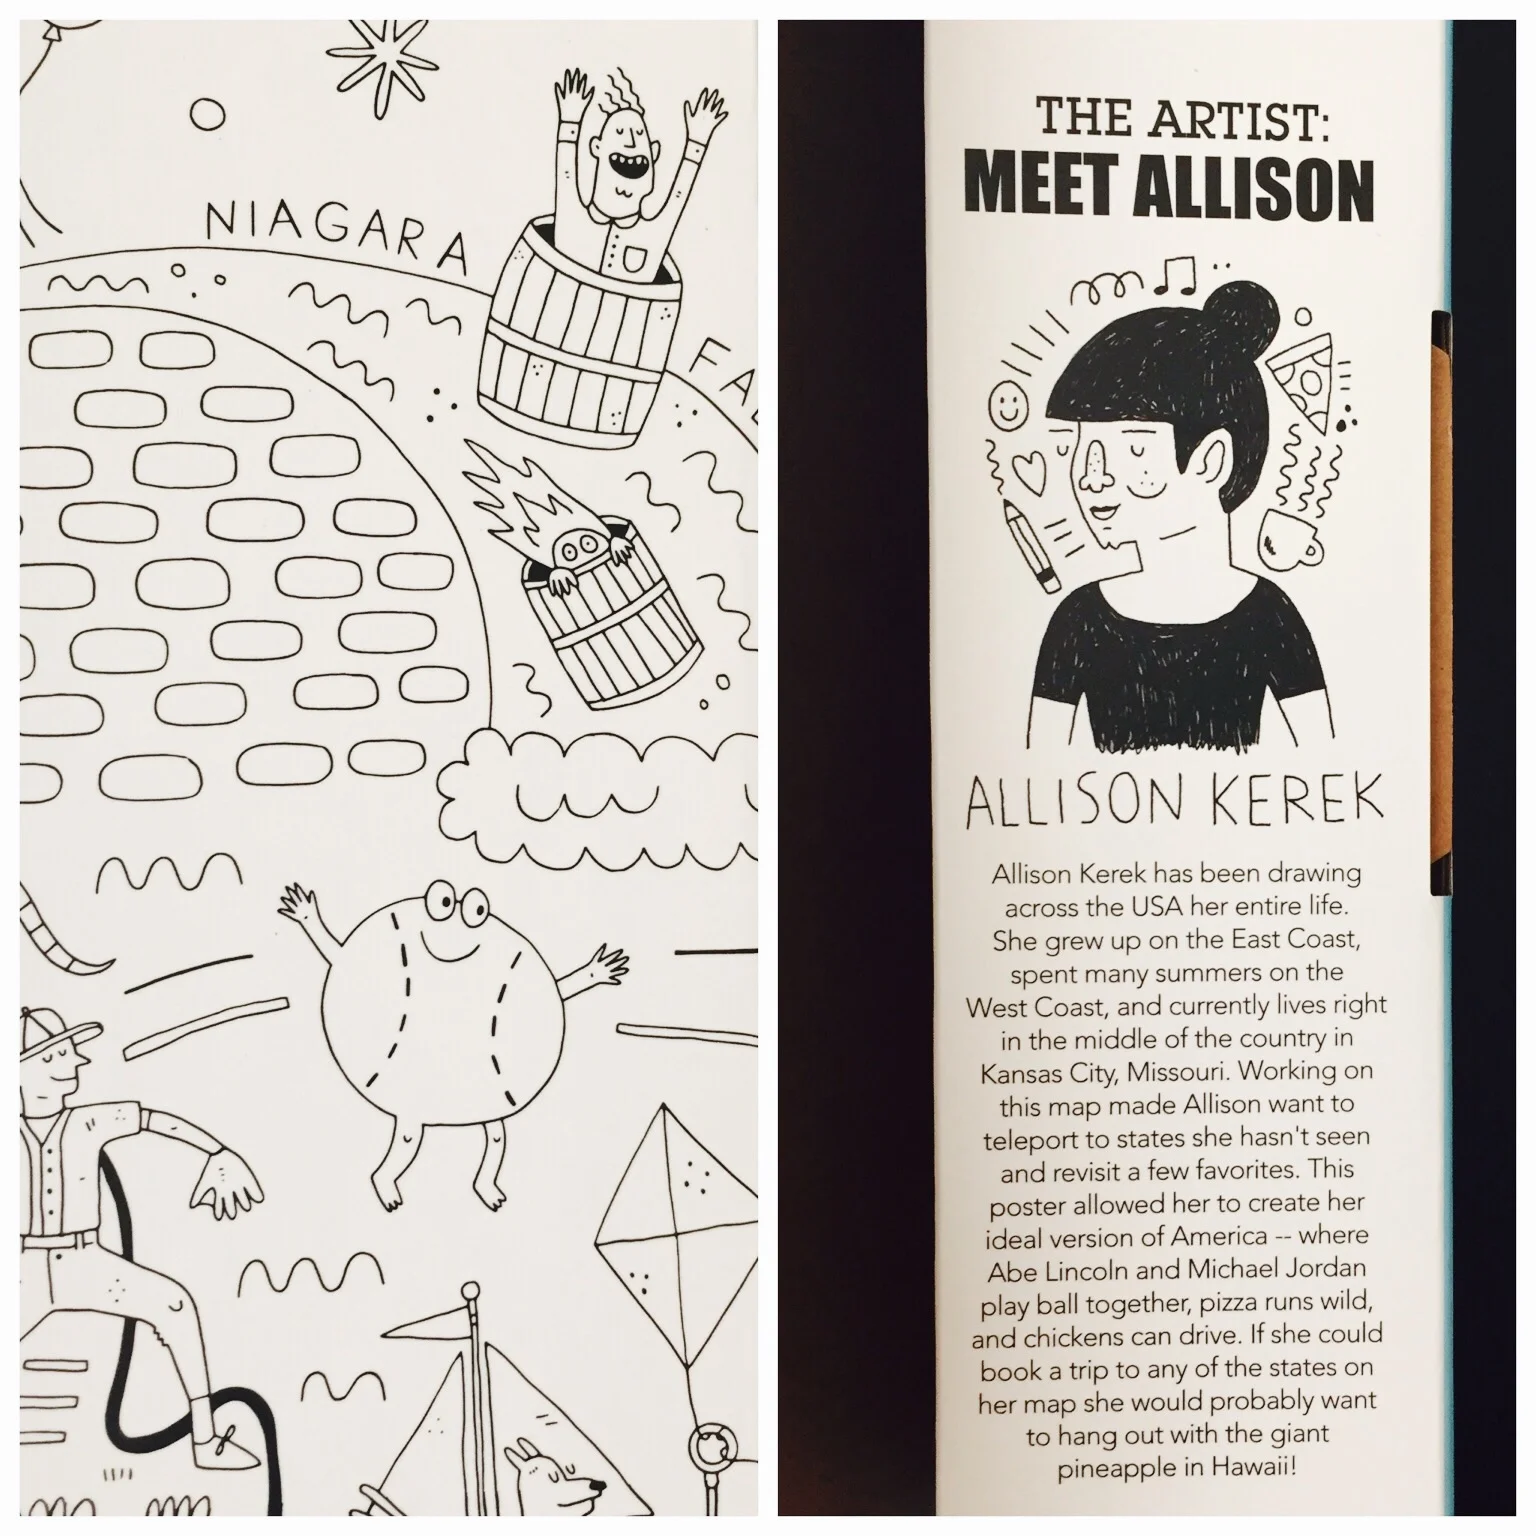 NIAGARA
FA
THE ARTIST:
MEET ALLISON
ALLISON KEREK
Allison Kerek has been drawing
across the USA her entire life.
She grew up on the East Coast,
spent many summers on the
West Coast, and currently lives right
in the middle of the country in
Kansas City, Missouri. Working on
this map made Allison want to
teleport to states she hasn't seen
and revisit a few favorites. This
poster allowed her to create her
ideal version of America -- where
Abe Lincoln and Michael Jordan
play ball together, pizza runs wild,
and chickens can drive. If she could
book a trip to any of the states on
her map she would probably want
to hang out with the giant
pineapple in Hawaii!